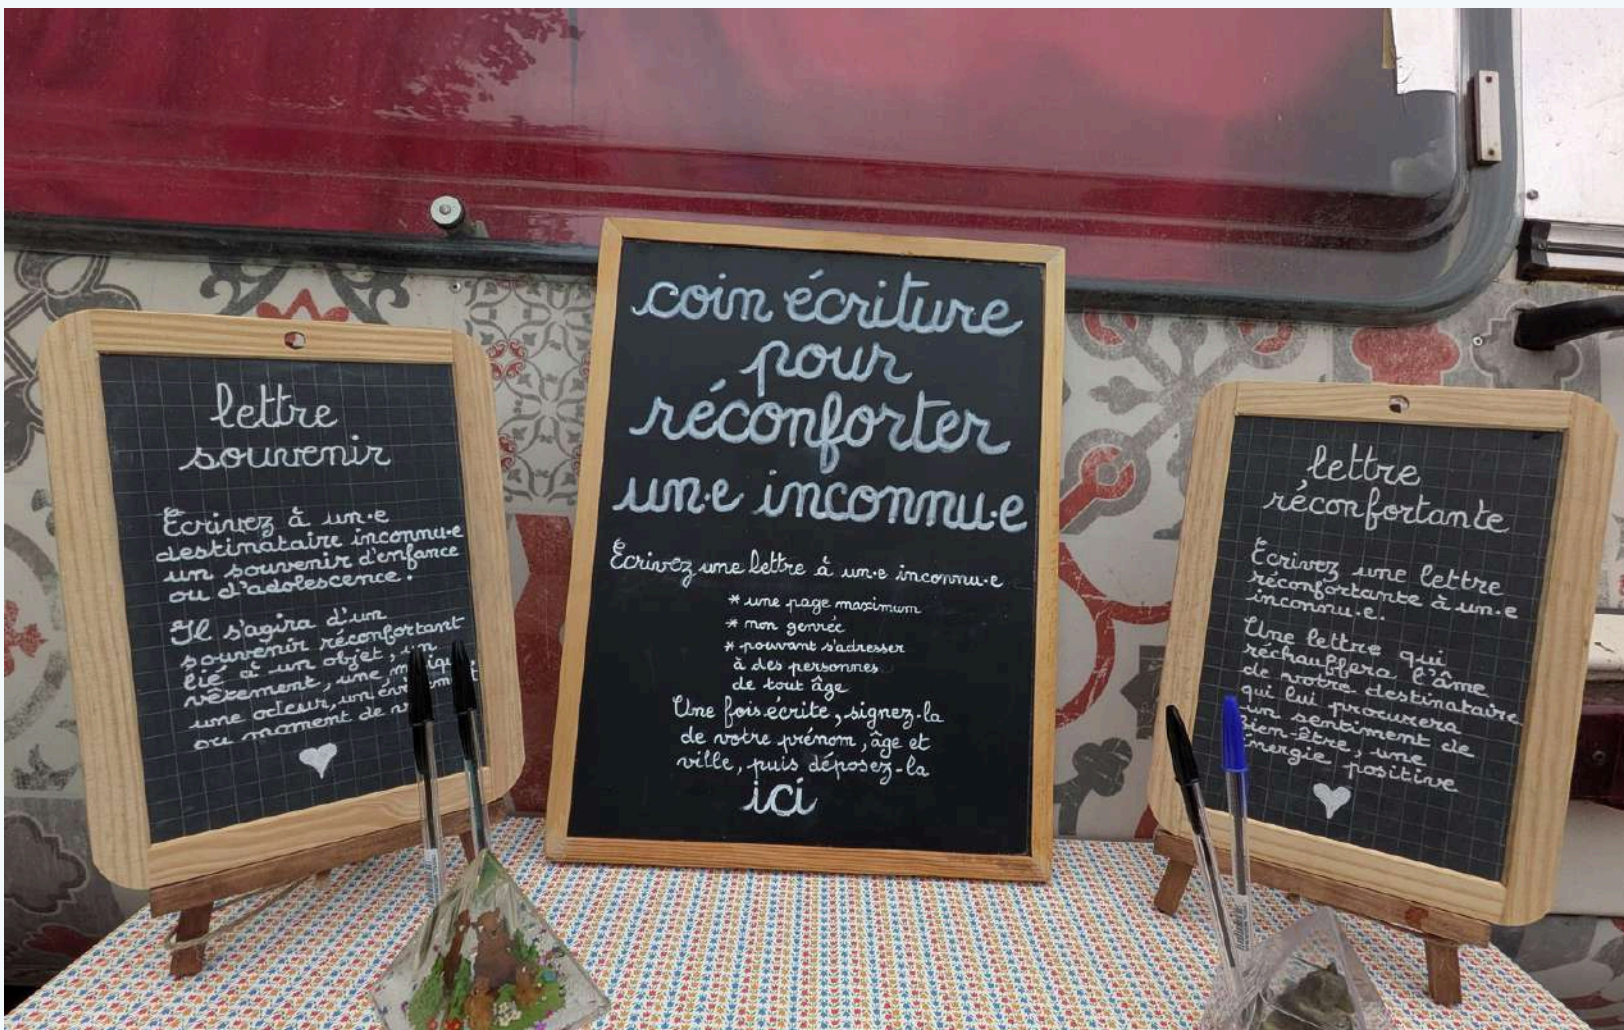 lettre
souvenir
Écrivez à un·e
destinataire inconnu·e
un souvenir d'enfance
ou d'adolescence.
Il s'agira d'un
souvenir réconfortant
lié à un objet, un
vêrement, une
une odeur, un
ou moment de
coin écriture
pour
réconforter
un·e inconnu·e
Écrivez une lettre à un·e inconnu·e
* une page maximum
* non genrée
* pouvant s'adresser
à des personnes
de tout âge
Une fois écrite, signez-la
de votre prénom, âge et
ville, puis déposez-la
ici
lettre
réconfortante
Écrivez une lettre
réconfortante à un·e
inconnu·e.
Une lettre qui
réchauffera l'âme
de votre destinataire
qui lui procurera
un sentiment de
bien-être, une
énergie positive